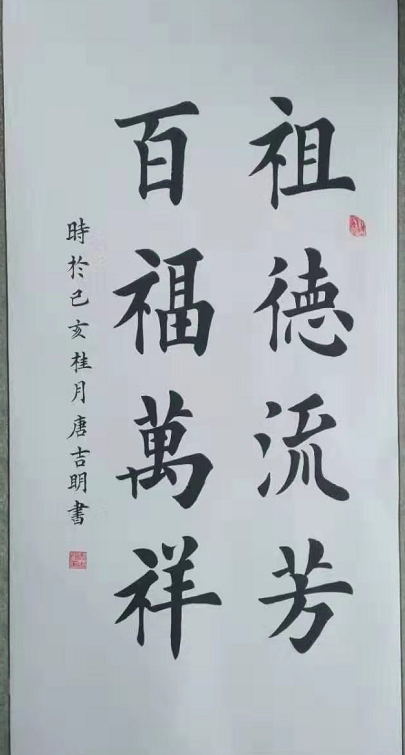 祖德流芳
百福萬祥
時於己亥桂月唐吉明書